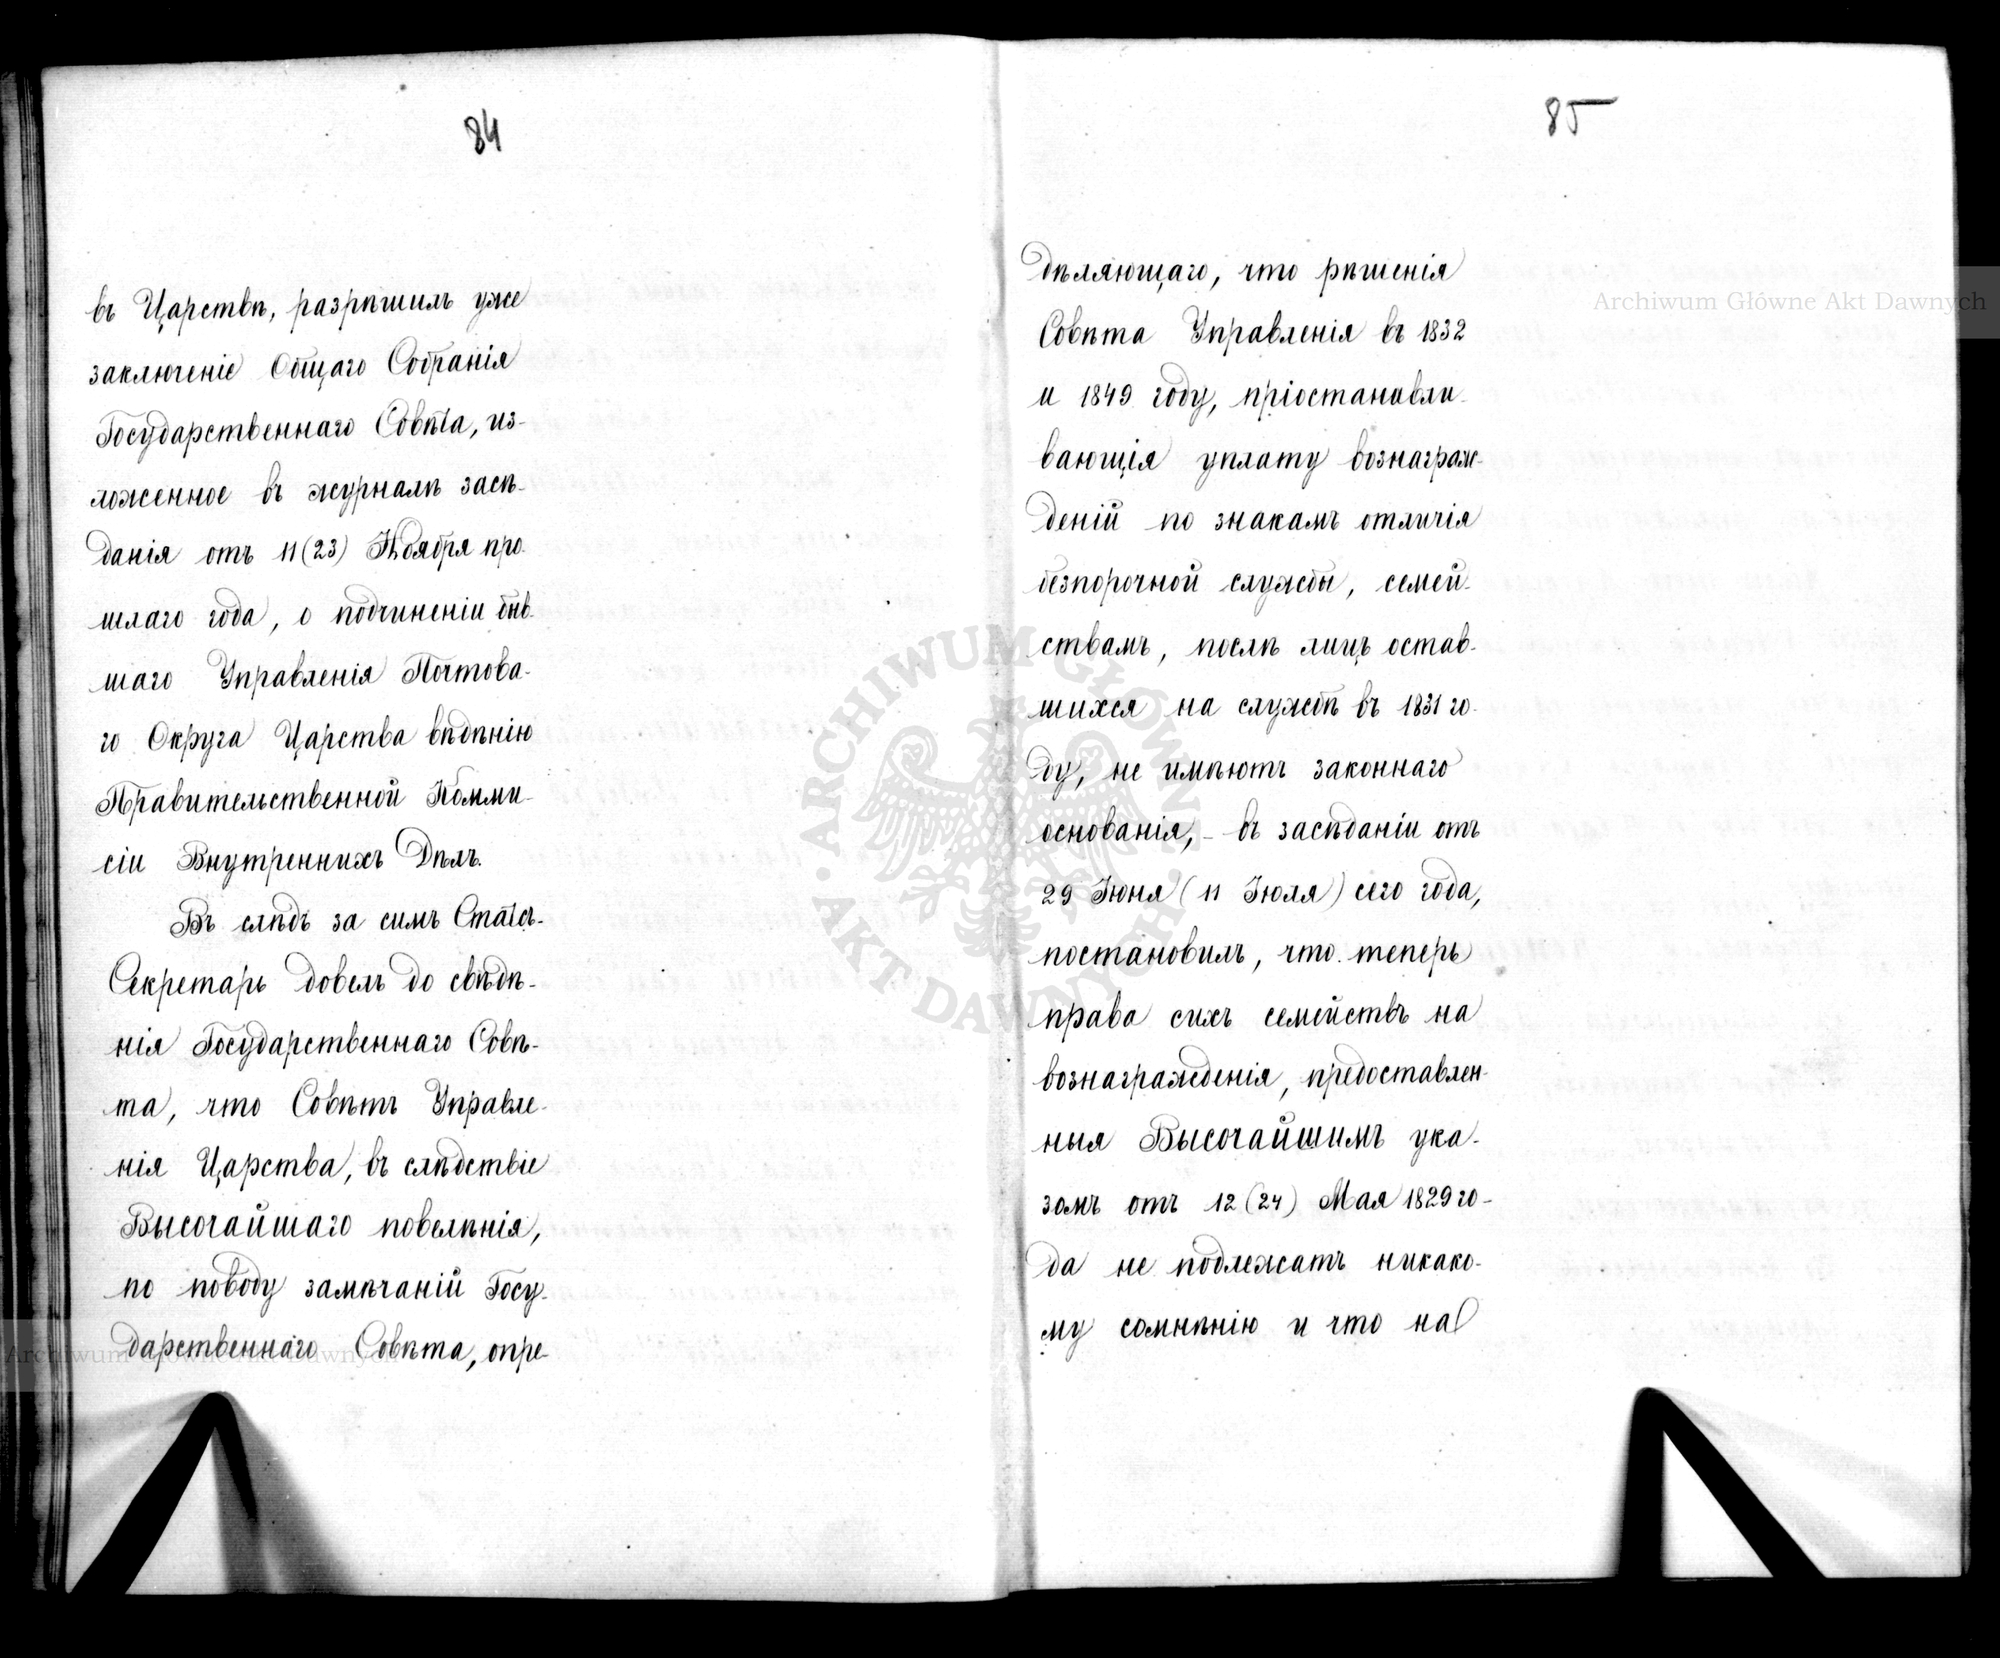 84
въ Царствѣ, разрѣшилъ уже
заключеніе Общаго Собранія
Государственнаго Совѣта, из-
ложенное въ журналѣ засѣ-
данія отъ 11 (23) Ноября про-
шлаго года, о подчиненіи быв-
шаго Управленія Почтова-
го Округа Царства вѣдѣнію
Правительственной Комми-
сіи Внутреннихъ Дѣлъ.
Въ слѣдъ за симъ Статсъ-
Секретарь довелъ до свѣдѣ-
нія Государственнаго Совѣ-
та, что Совѣтъ Управле-
нія Царства, въ слѣдствіе
Высочайшаго повелѣнія,
по поводу замѣчаній Госу-
дарственнаго Совѣта, опре-
85
дѣляющаго, что рѣшенія
Совѣта Управленія въ 1832
и 1849 году, пріостанавли-
вающія уплату вознаграж-
деній по знакамъ отличія
безпорочной службы, семей-
ствамъ, послѣ лицъ остав-
шихся на службѣ въ 1831 го-
ду, не имѣютъ законнаго
основанія, - въ засѣданіи отъ
29 Іюня (11 Іюля) сего года,
постановилъ, что теперь
права сихъ семействъ на
вознагражденія, предоставлен-
ныя Высочайшимъ ука-
зомъ отъ 12 (24) Мая 1829 го-
да не подлежатъ никако-
му сомнѣнію и что на
Archiwum Główne Akt Dawnych
ARCHIWUM GŁÓWNE AKT DAWNYCH
Archiwum Główne Akt Dawnych